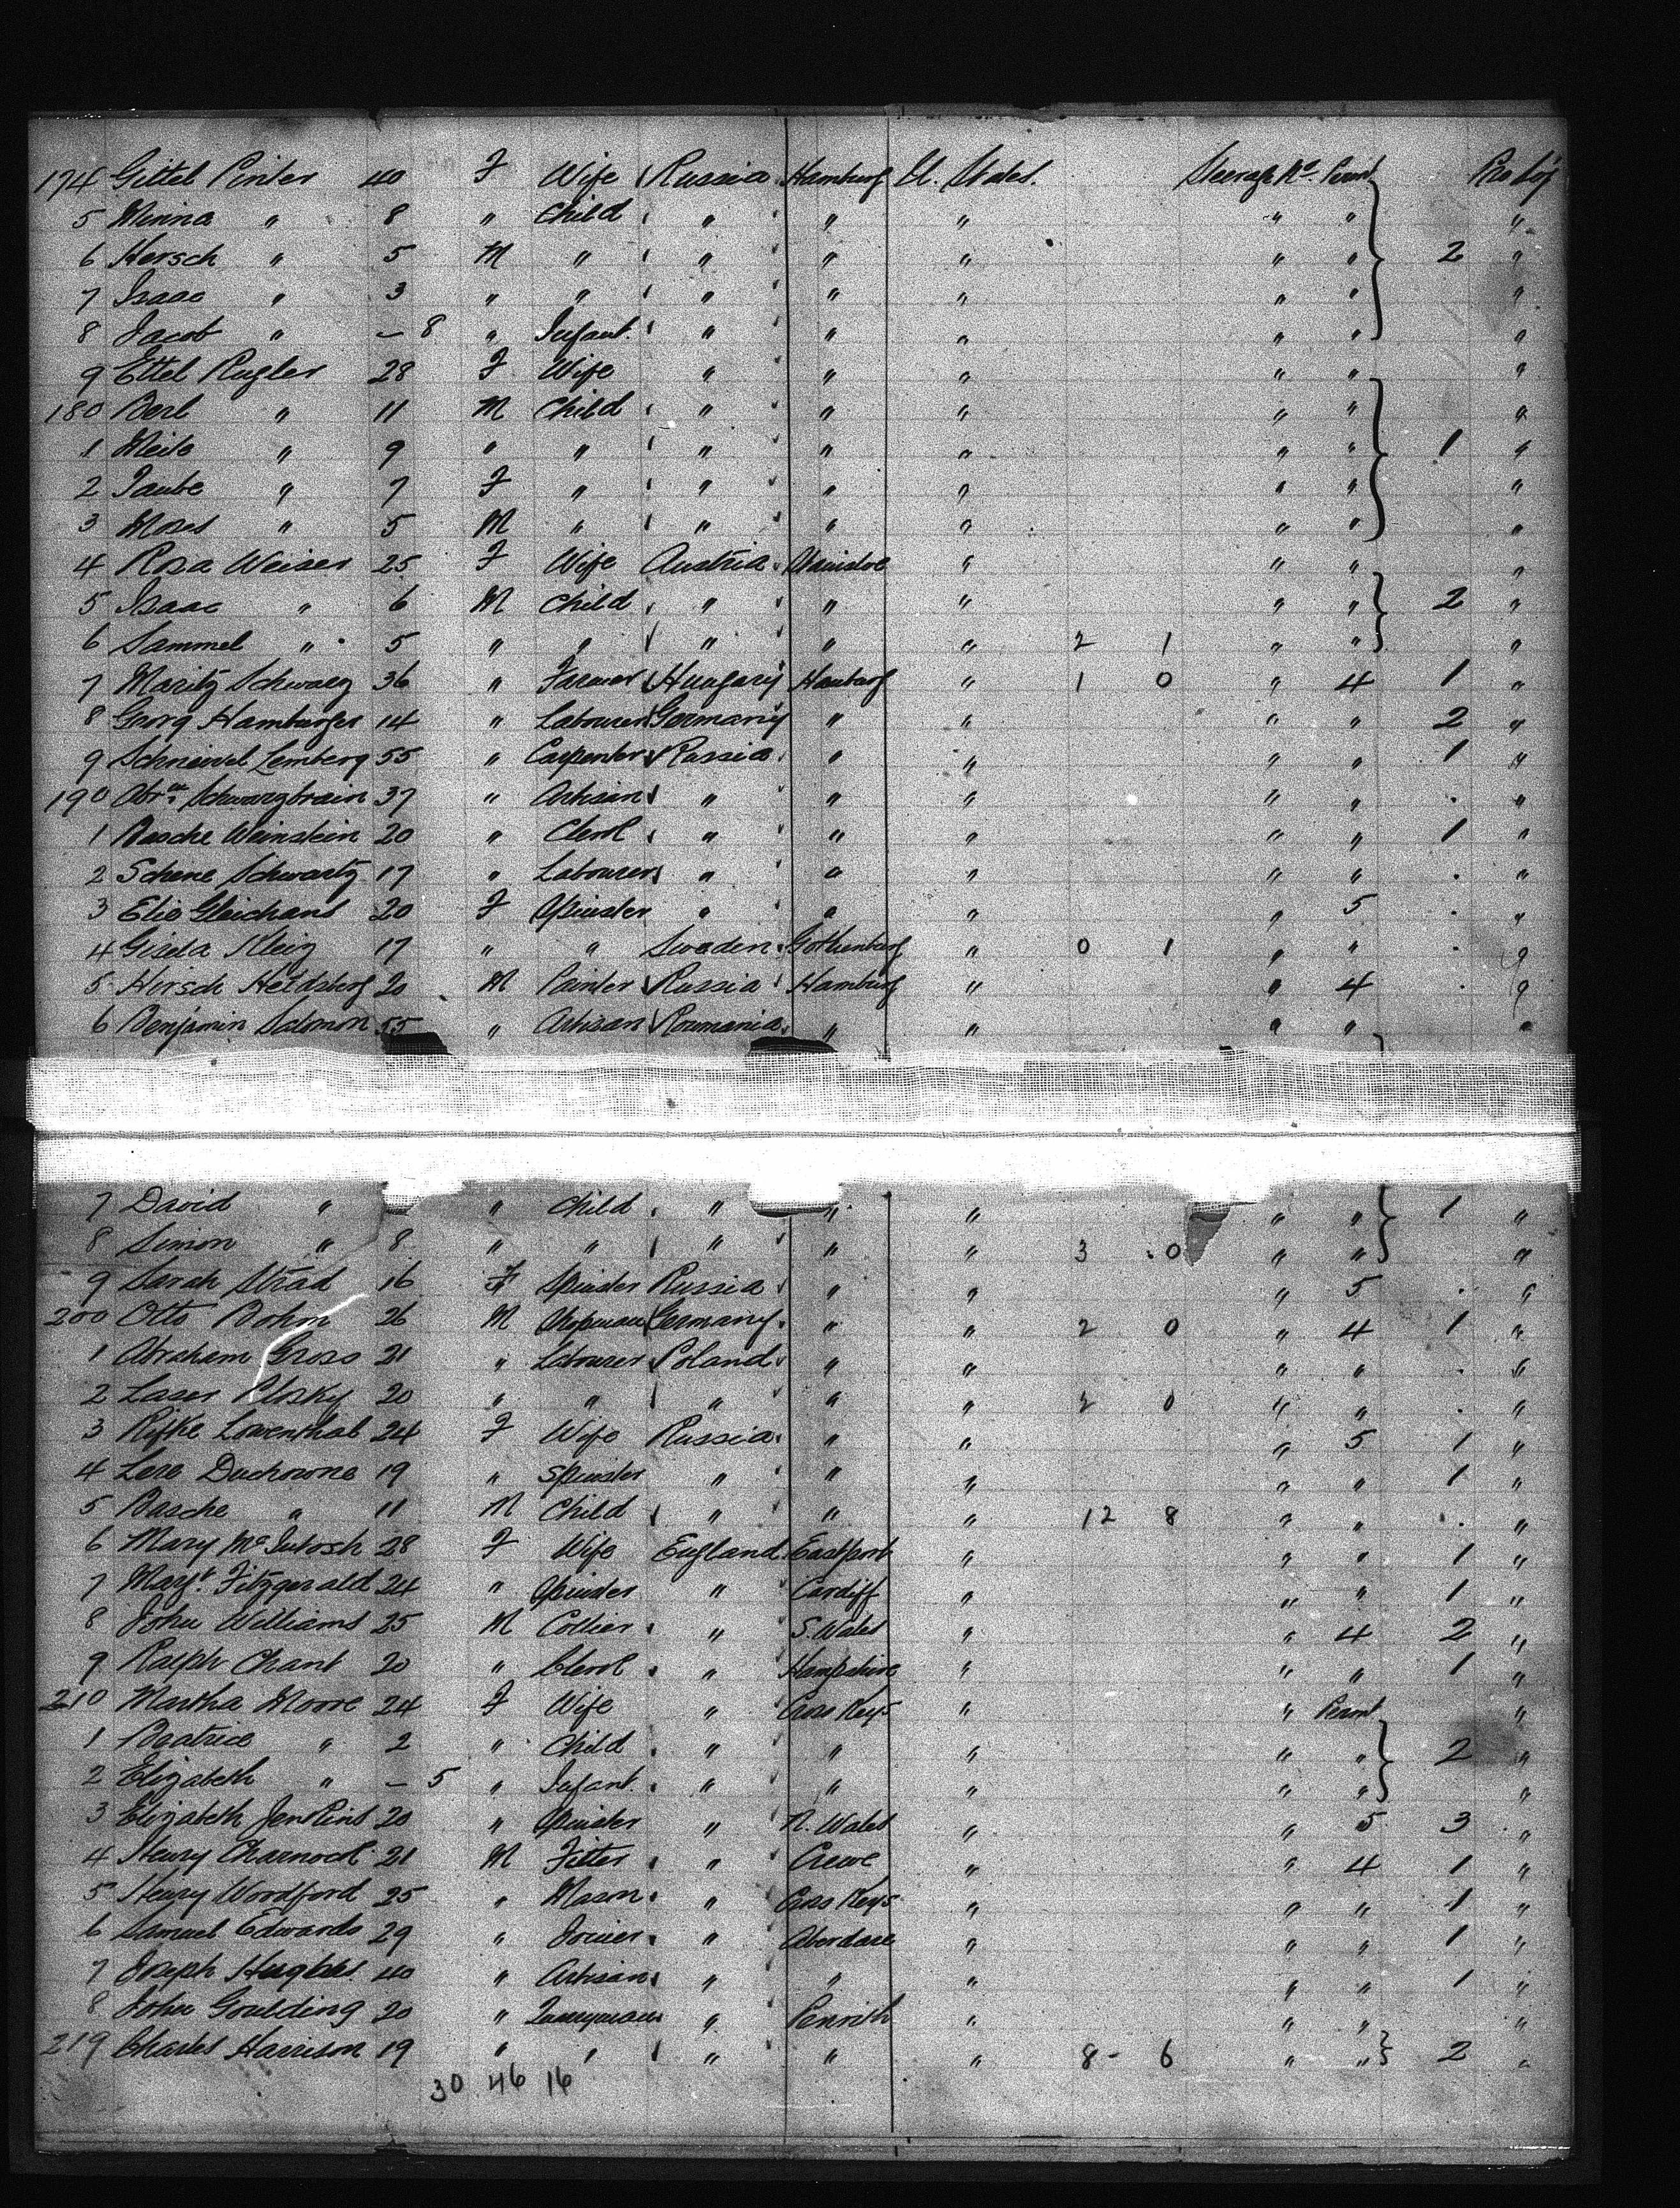 174 Gittel Pinter 40 F Wife Russia Hamburg U. States. Steerage No. Permt 
5 Minna " 8 " Child " " " " " "
6 Hersch " 5 M " " " " " " 2 "
7 Isaac " 3 " " " " " " " "
8 Jacob " – 8 " Infant. " " " " " "
9 Ettel Kugler 28 F Wife " " " " " "
180 Berl " 11 M Child " " " " " "
1 " 9 " " " " " " " 1 "
2 Taube " 7 F " " " " " " "
3 Moses " 5 M " " " " " " "
4 Rosa Weiser 25 F Wife Austria " " " "
5 Isaac " 6 M Child " " " " " 2 "
6 Sammel " 5 " " " " " 2 1 " " "
7 Moritz Schwarz 36 " Farmer Hungary Hamburg " 1 0 " 4 1 "
8 Georg Hamburger 14 " Labourer Germany " " " " 2 "
9 Lemberg 55 " Carpenter Russia " " " " 1 "
190 37 " Artisan " " " " " . "
1 Basche Weinstein 20 " Clerk " " " " " 1 "
2 Schene Schwartz 17 " Labourer " " " " " . "
3 20 F Spinster " " " " 5 . "
4 Gisela 17 " " Sweden Gothenburg " 0 1 " " . "
5 Hirsch 20 M Painter Russia Hamburg " " 4 . "
6 Benjamin Salomon 55 " Artisan Roumania " " " " "
7 David " " Child " " " " " 1 "
8 Simon " 8 " " " " " 3 0 " " "
9 Sarah 16 F Spinster Russia " " " 5 . "
200 Otto Bohm 26 M Germany " " 2 0 " 4 1 "
1 Abraham Gross 21 " Labourer Poland " " " " . "
2 Laser 20 " " " " " 2 0 " " . "
3 Rifke Lowenthal 24 F Wife Russia " " " 5 1 "
4 Lere Duchowne 19 " Spinster " " " " " 1 "
5 Basche " 11 M Child " " " 12 8 " " . "
6 Mary McIntosh 28 F Wife England Eastport " " " 1 "
7 Margt. Fitzgerald 24 " Spinster " Cardiff " " " 1 "
8 John Williams 25 M Collier " S. Wales " " 4 2 "
9 Ralph Chant 20 " Clerk " Hampshire " " " 1 "
210 Martha Moore 24 F Wife " Cross Keys " " Permt "
1 Beatrice " 2 " Child " " " " " 2 "
2 Elizabeth " – 5 " Infant. " " " " " "
3 Elizabeth Jenkins 20 " Spinster " N. Wales " " 5 3 "
4 Henry Charnock 21 M Fitter " Crewe " " 4 1 "
5 Henry Woodford 25 " Mason " Cross Keys " " " 1 "
6 Samuel Edwards 29 " Joiner " Aberdare " " " 1 "
7 Joseph Hughes 40 " Artisan " " " " " 1 "
8 John Goulding 20 " Quarryman " Penrith " " " "
219 Charles Harrison 19 " " " " " 8 - 6 " " 2 "
30 46 16